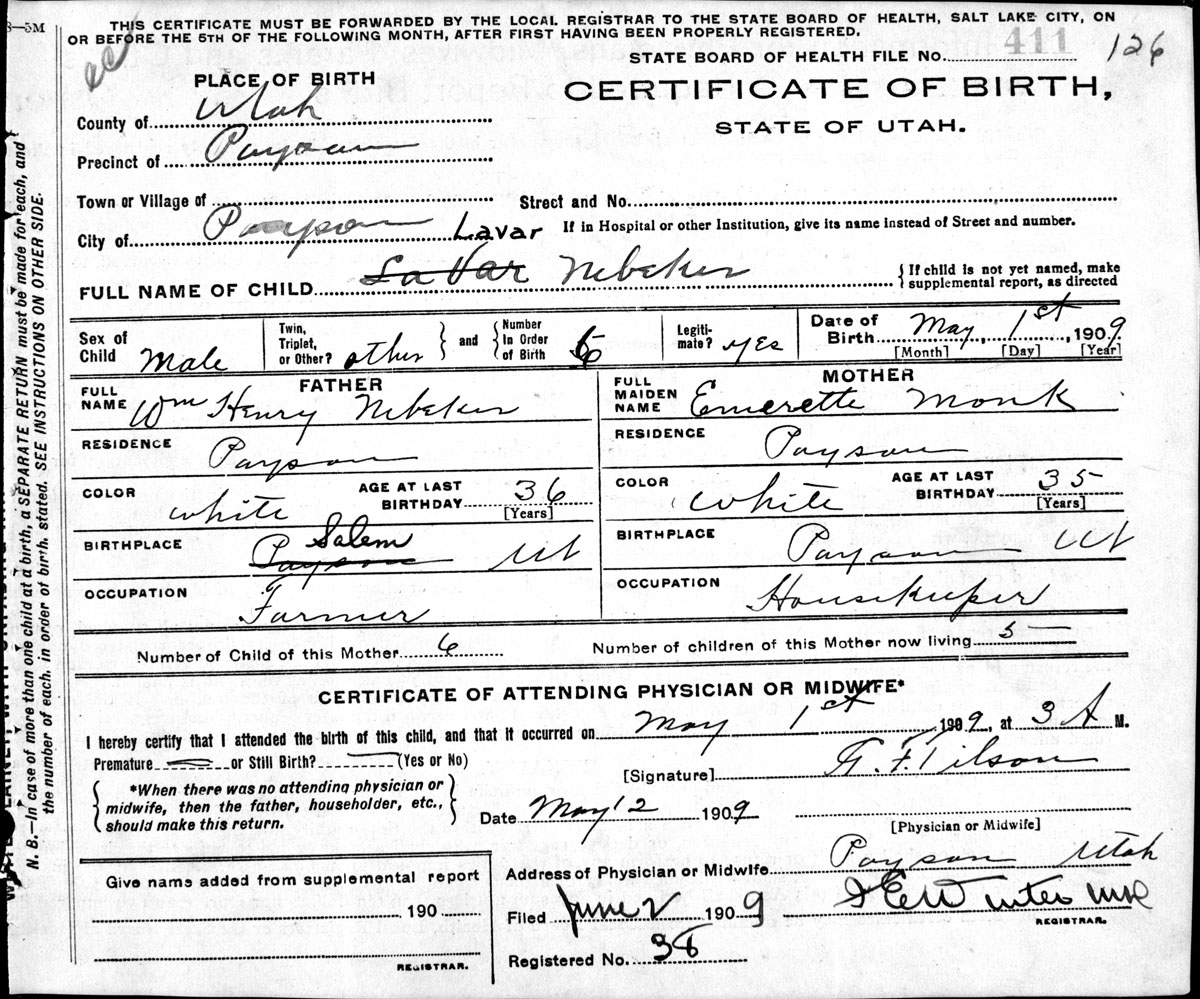 8—5M
THIS CERTIFICATE MUST BE FORWARDED BY THE LOCAL REGISTRAR TO THE STATE BOARD OF HEALTH, SALT LAKE CITY, ON
OR BEFORE THE 5TH OF THE FOLLOWING MONTH, AFTER FIRST HAVING BEEN PROPERLY REGISTERED.
STATE BOARD OF HEALTH FILE No. 411 126
PLACE OF BIRTH
CERTIFICATE OF BIRTH,
STATE OF UTAH.
County of Utah
Precinct of Payson
Town or Village of
Street and No.
City of Payson
If in Hospital or other Institution, give its name instead of Street and number.
Lavar
FULL NAME OF CHILD LaVar Nebeker
{ If child is not yet named, make
supplemental report, as directed
Sex of Child Male
Twin, Triplet, or Other? other } and { Number In Order of Birth 6
Legiti-mate? yes
Date of Birth May, 1st, 1909
[Month] [Day] [Year]
FATHER
FULL NAME Wm Henry Nebeker
RESIDENCE Payson
COLOR white
AGE AT LAST BIRTHDAY 36
[Years]
BIRTHPLACE Payson Salem Ut
OCCUPATION Farmer
MOTHER
FULL MAIDEN NAME Emerette Monk
RESIDENCE Payson
COLOR white
AGE AT LAST BIRTHDAY 35
[Years]
BIRTHPLACE Payson Ut
OCCUPATION Housekeeper
Number of Child of this Mother 6
Number of children of this Mother now living 5
CERTIFICATE OF ATTENDING PHYSICIAN OR MIDWIFE*
I hereby certify that I attended the birth of this child, and that it occurred on May 1st, 1909, at 3 A M.
Premature or Still Birth? (Yes or No)
[Signature] F. Tilson
{ *When there was no attending physician or
midwife, then the father, householder, etc.,
should make this return. }
Date May 12 1909
[Physician or Midwife]
Address of Physician or Midwife Payson Utah
Give name added from supplemental report
190
REGISTRAR.
Filed June 2 1909
REGISTRAR.
Registered No. 38
N. B.—In case of more than one child at a birth, a SEPARATE RETURN must be made for each, and
the number of each, in order of birth, stated. SEE INSTRUCTIONS ON OTHER SIDE.